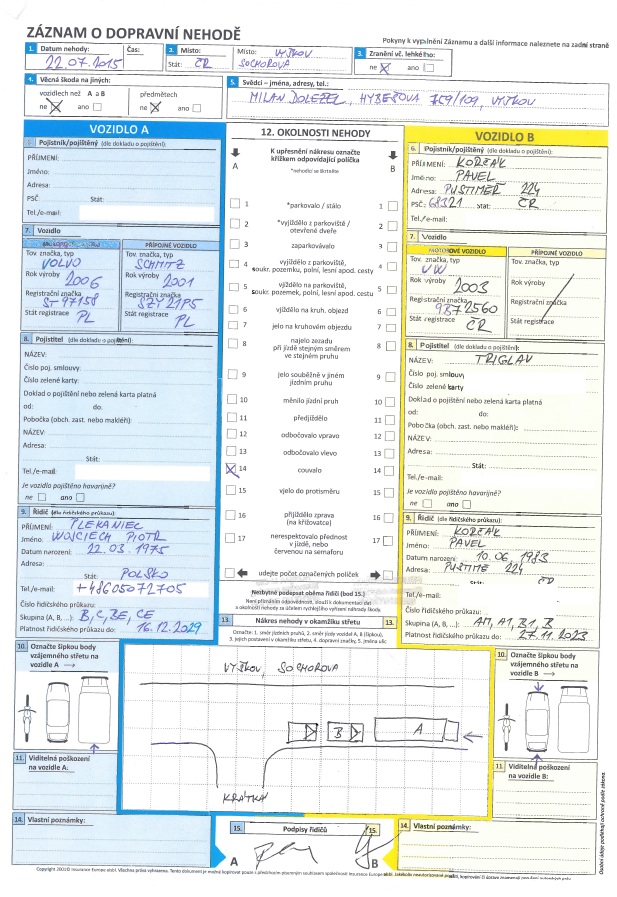 ZÁZNAM O DOPRAVNÍ NEHODĚ
Pokyny k vyplnění Záznamu a další informace naleznete na zadní straně
1. Datum nehody: Čas:
22.07.2015
2. Místo: Místo: VYŠKOV
Stát: ČR SOCHOROVA
3. Zranění vč. lehkého:
ne X ano
4. Věcná škoda na jiných:
vozidlech než A a B předmětech
ne X ano ne X ano
5. Svědci – jména, adresy, tel.:
MILAN DOLEŽEL, HYBEŠOVA 759/109, VYŠKOV
VOZIDLO A
Pojistník/pojištěný (dle dokladu o pojištění):
PŘÍJMENÍ:
Jméno:
Adresa:
PSČ: Stát:
Tel./e-mail:
7. Vozidlo
PŘÍPOJNÉ VOZIDLO
Tov. značka, typ Tov. značka, typ
VOLVO SCHMITZ
Rok výroby Rok výroby
2006 2001
Registrační značka Registrační značka
ST 97158 SZY 21P5
Stát registrace Stát registrace
PL PL
8. Pojistitel (dle dokladu o pojištění):
NÁZEV:
Číslo poj. smlouvy:
Číslo zelené karty:
Doklad o pojištění nebo zelená karta platná
od: do:
Pobočka (obch. zast. nebo makléř):
NÁZEV:
Adresa:
Stát:
Tel./e-mail:
Je vozidlo pojištěno havarijně?
ne ano
9. Řidič (dle řidičského průkazu):
PŘÍJMENÍ: PLEKANIEC
Jméno: WOJCIECH PIOTR
Datum narození: 22.03.1975
Adresa:
Stát: POLSKO
Tel./e-mail: +48605072705
Číslo řidičského průkazu:
Skupina (A, B, ...): B, C, BE, CE
Platnost řidičského průkazu do: 16.12.2029
12. OKOLNOSTI NEHODY
K upřesnění nákresu označte
křížkem odpovídající políčka
A B
*nehodící se škrtněte
1 *parkovalo / stálo 1
2 *vyjíždělo z parkoviště / otevřené dveře 2
3 zaparkovávalo 3
4 vyjíždělo z parkoviště, soukr. pozemku, polní, lesní apod. cesty 4
5 vjíždělo na parkoviště, soukr. pozemek, polní, lesní apod. cestu 5
6 vjíždělo na kruh. objezd 6
7 jelo na kruhovém objezdu 7
8 najelo zezadu při jízdě stejným směrem ve stejném pruhu 8
9 jelo souběžně v jiném jízdním pruhu 9
10 měnilo jízdní pruh 10
11 předjíždělo 11
12 odbočovalo vpravo 12
13 odbočovalo vlevo 13
X 14 couvalo 14
15 vjelo do protisměru 15
16 přijíždělo zprava (na křižovatce) 16
17 nerespektovalo přednost v jízdě, nebo červenou na semaforu 17
udejte počet označených políček
Nezbytně podepsat oběma řidiči (bod 15.)
Není přiznáním odpovědnosti, slouží k dokumentaci dat
a okolností nehody za účelem rychlejšího vyřízení náhrady škody.
VOZIDLO B
6. Pojistník/pojištěný (dle dokladu o pojištění):
PŘÍJMENÍ: KOREAK
Jméno: PAVEL
Adresa: PUSTIMĚŘ 224
PSČ: 68321 Stát: ČR
Tel./e-mail:
7. Vozidlo
MOTOROVÉ VOZIDLO PŘÍPOJNÉ VOZIDLO
Tov. značka, typ Tov. značka, typ
VW
Rok výroby 2003 Rok výroby
Registrační značka Registrační značka
9B7 2560
Stát registrace ČR Stát registrace
8. Pojistitel (dle dokladu o pojištění):
NÁZEV: TRIGLAV
Číslo poj. smlouvy
Číslo zelené karty
Doklad o pojištění nebo zelená karta platná
od: do:
Pobočka (obch. zast. nebo makléř):
NÁZEV:
Adresa:
Stát:
Tel./e-mail:
Je vozidlo pojištěno havarijně?
ne ano
9. Řidič (dle řidičského průkazu):
PŘÍJMENÍ: KOREAK
Jméno: PAVEL
Datum narození: 10.06.1983
Adresa: PUSTIMĚ 224
ČR
Tel./e-mail:
Číslo řidičského průkazu:
Skupina (A, B, ...): AM, A1, B1, B
Platnost řidičského průkazu do: 27.11.2023
13. Nákres nehody v okamžiku střetu 13.
Označte: 1. směr jízdních pruhů, 2. směr jízdy vozidel A, B (šipkou),
3. jejich postavení v okamžiku střetu, 4. dopravní značky, 5. jména ulic
VYŠKOV, SOCHOROVA
B A
KRÁTKÁ
10. Označte šipkou body vzájemného střetu na vozidle A
11. Viditelná poškození na vozidle A:
10. Označte šipkou body vzájemného střetu na vozidle B
11. Viditelná poškození na vozidle B:
14. Vlastní poznámky:
15. Podpisy řidičů 15.
A B
14. Vlastní poznámky: